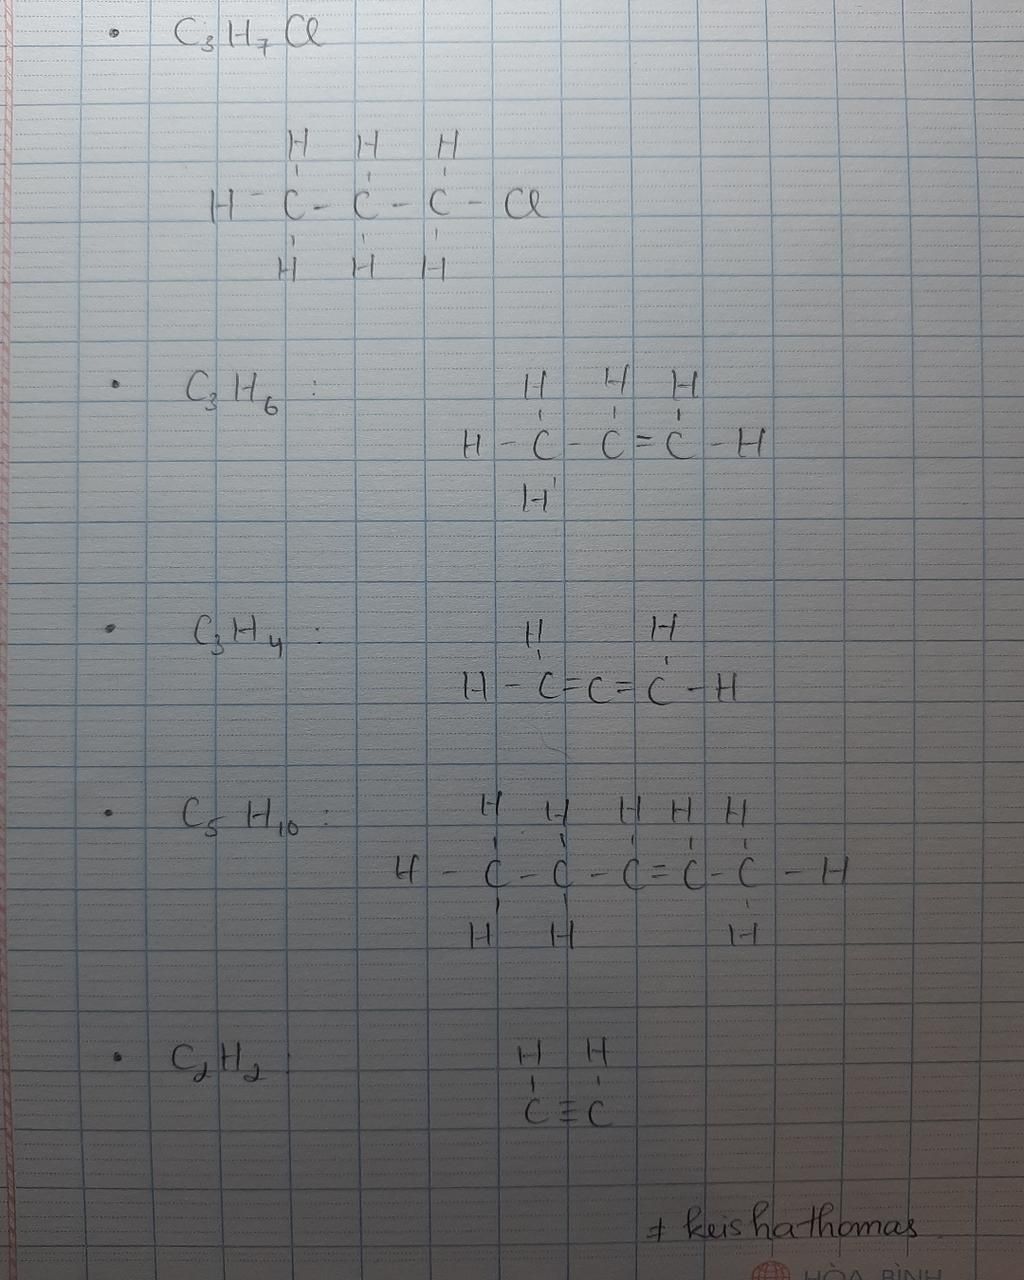 • C₃H₇Cl
H H H
H - C - C - C - Cl
H H H
• C₃H₆ :
H H H
H - C - C = C - H
H
• C₃H₄ :
H H
H - C = C = C - H
• C₅H₁₀ :
H H H H H
H - C - C - C = C - C - H
H H H
• C₂H₂
H H
C ≡ C
+ keishathomas
HÒA BÌNH